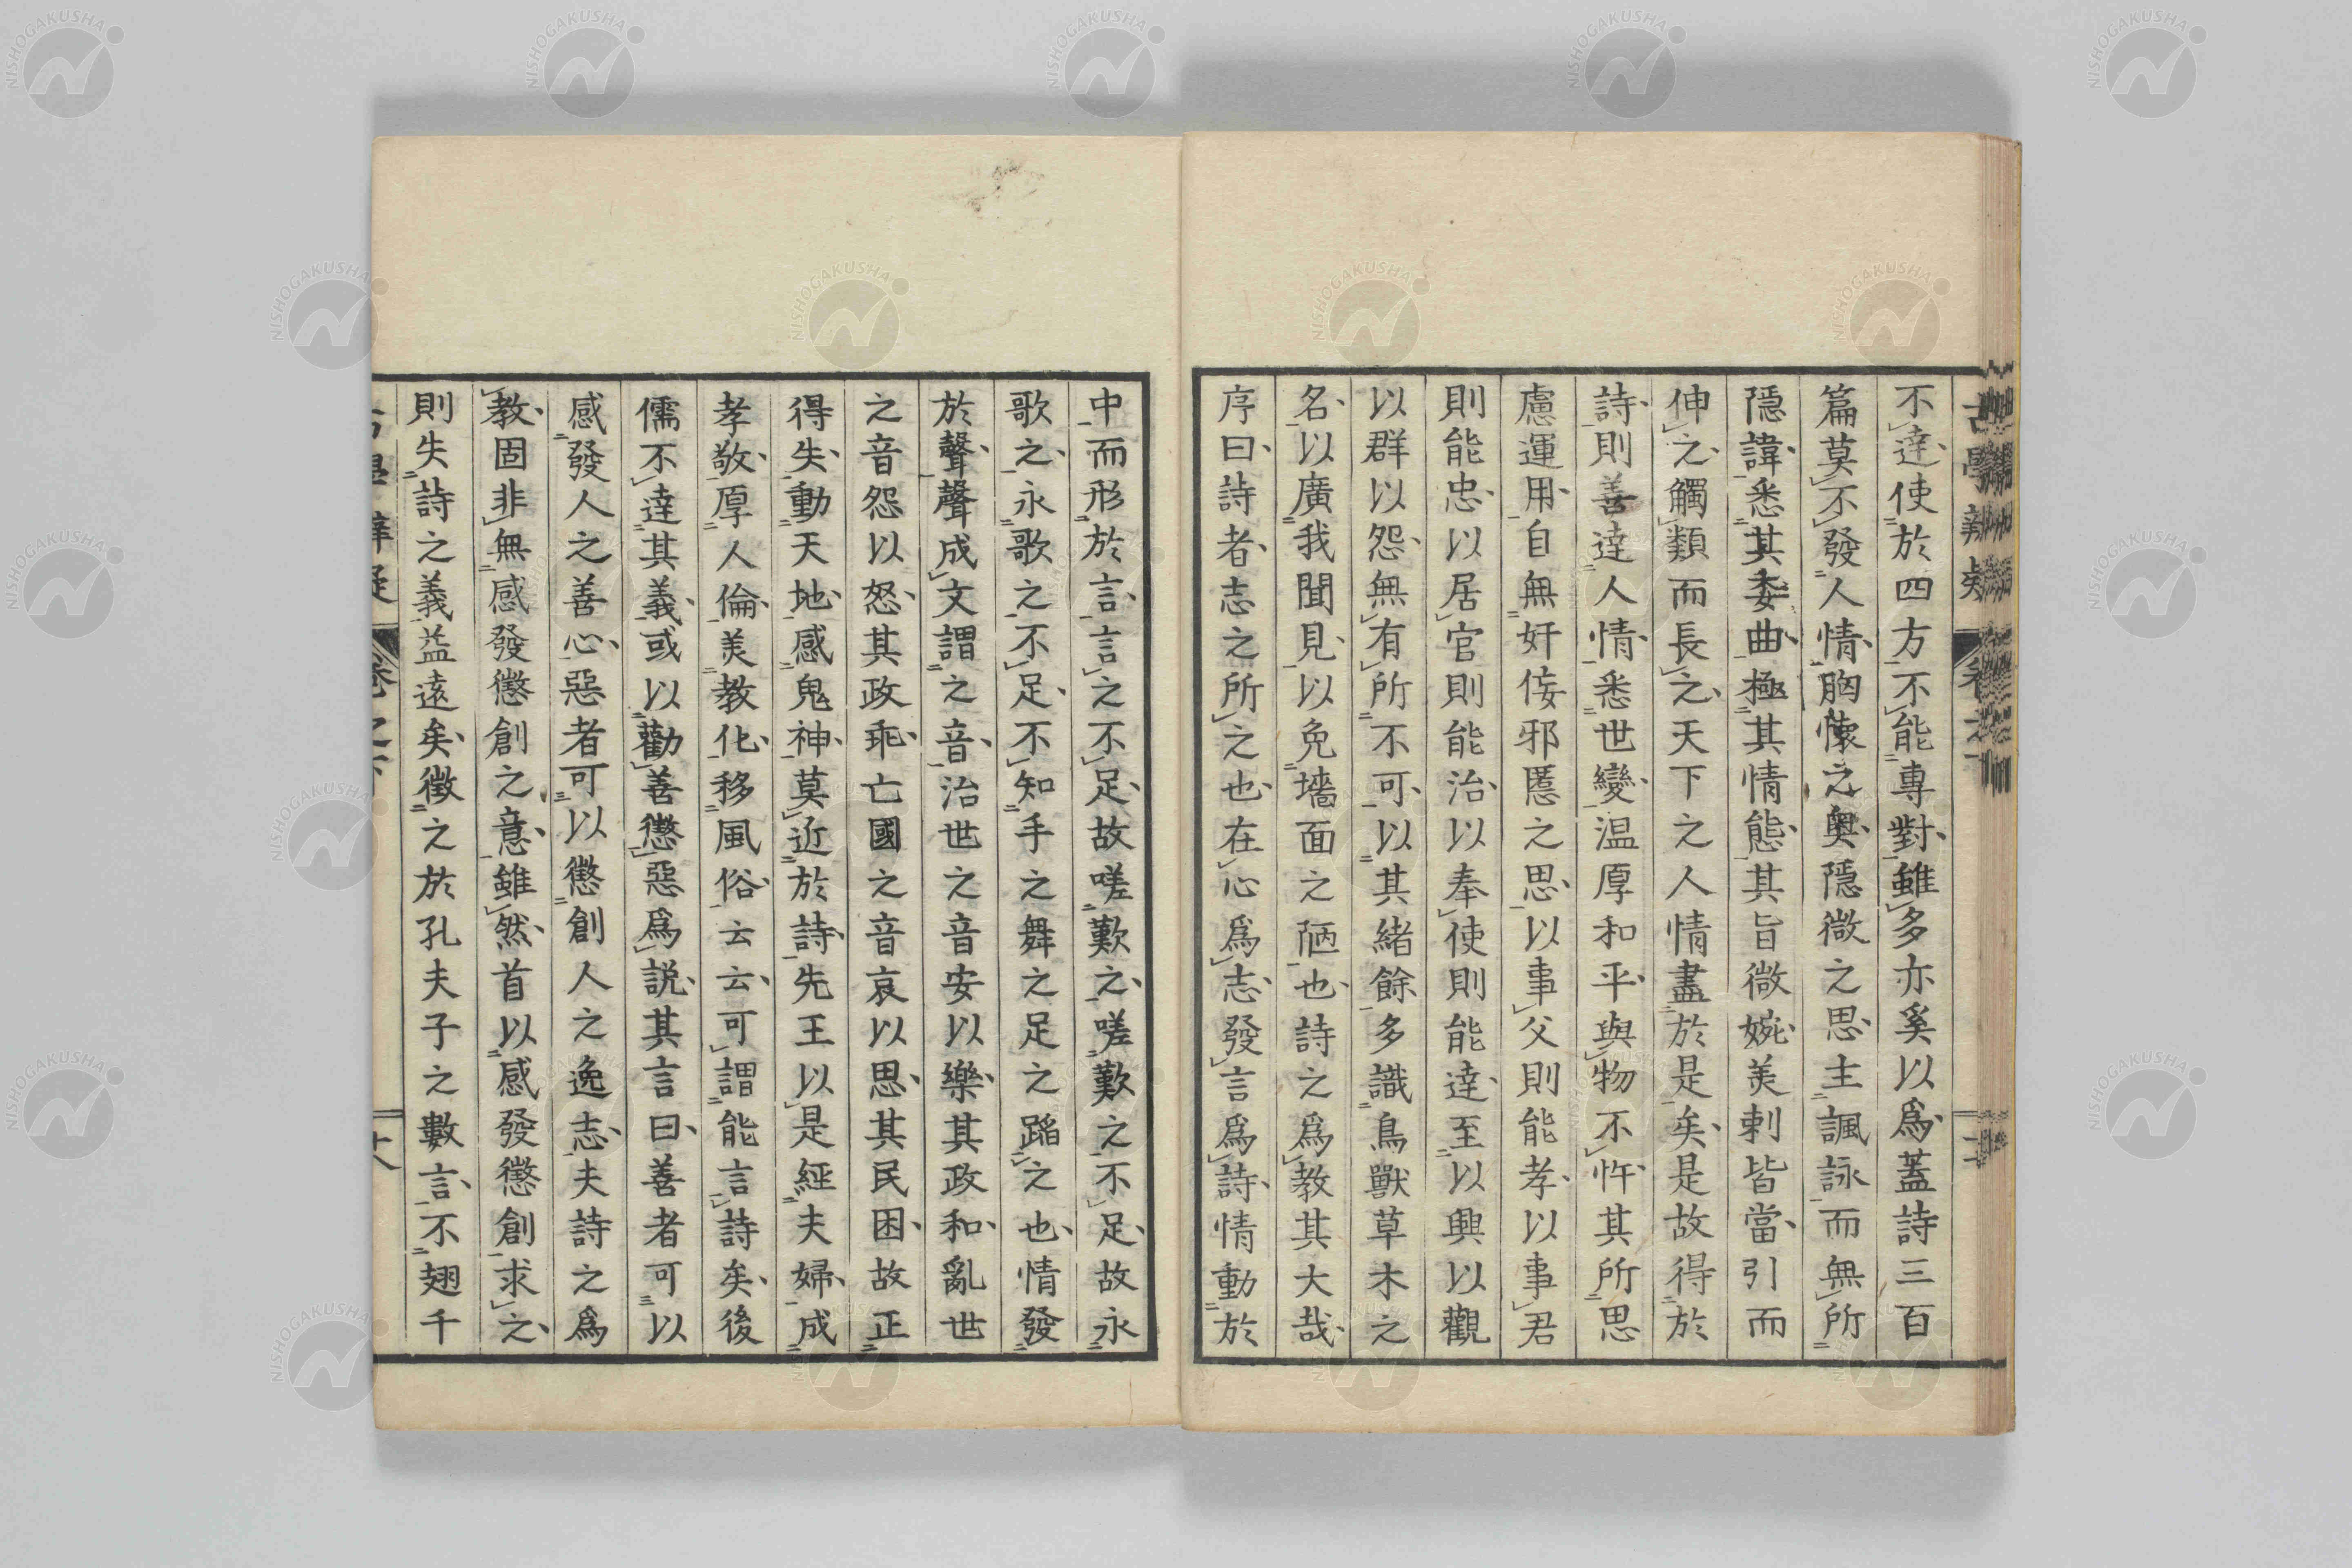 不達使於四方不能專對雖多亦奚以爲蓋詩三百
篇莫不發人情胸懷之奧隱微之思主諷詠而無所
隱諱悉其委曲極其情態其旨微婉美刺皆當引而
伸之觸類而長之天下之人情盡於是矣是故得於
詩則善達人情悉世變温厚和平與物不忤其所思
慮運用自無奸佞邪慝之思以事父則能孝以事君
則能忠以居官則能治以奉使則能達至以興以觀
以群以怨無有所不可以其緒餘多識鳥獸草木之
名以廣我聞見以免墻面之陋也詩之爲教其大哉
序曰詩者志之所之也在心爲志發言爲詩情動於
中而形於言言之不足故嗟歎之嗟歎之不足故永
歌之永歌之不足不知手之舞之足之蹈之也情發
於聲聲成文謂之音治世之音安以樂其政和亂世
之音怨以怒其政乖亡國之音哀以思其民困故正
得失動天地感鬼神莫近於詩先王以是經夫婦成
孝敬厚人倫美教化移風俗云云可謂能言詩矣後
儒不達其義或以勸善懲惡爲説其言曰善者可以
感發人之善心惡者可以懲創人之逸志夫詩之爲
教固非無感發懲創之意雖然首以感發懲創求之
則失詩之義益遠矣徵之於孔夫子之數言不翅千
NISHOGAKUSHA